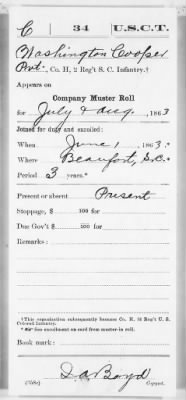 C 34 U.S.C.T.
Washington Cooper
Pvt., Co. H, 2 Reg't S. C. Infantry.†
Appears on
Company Muster Roll
for July & Aug, 1863
Joined for duty and enrolled:
When June 1, 1863.*
Where Beaufort, S.C.*
Period 3 years.*
Present or absent Present
Stoppage, $ 100 for
Due Gov't $ 100 for
Remarks:
†This organization subsequently became Co. H, 34 Reg't U. S.
Colored Infantry.
* See enrollment on card from muster-in roll.
Book mark:
D A Boyd
(358c) Copyist.